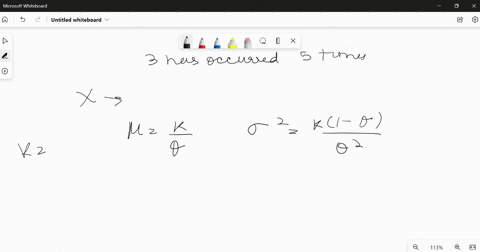 Microsoft Whiteboard
Untitled whiteboard
3 has occurred 5 times
X →
μ = k/θ σ² = k(1-θ)/θ²
k =
113%